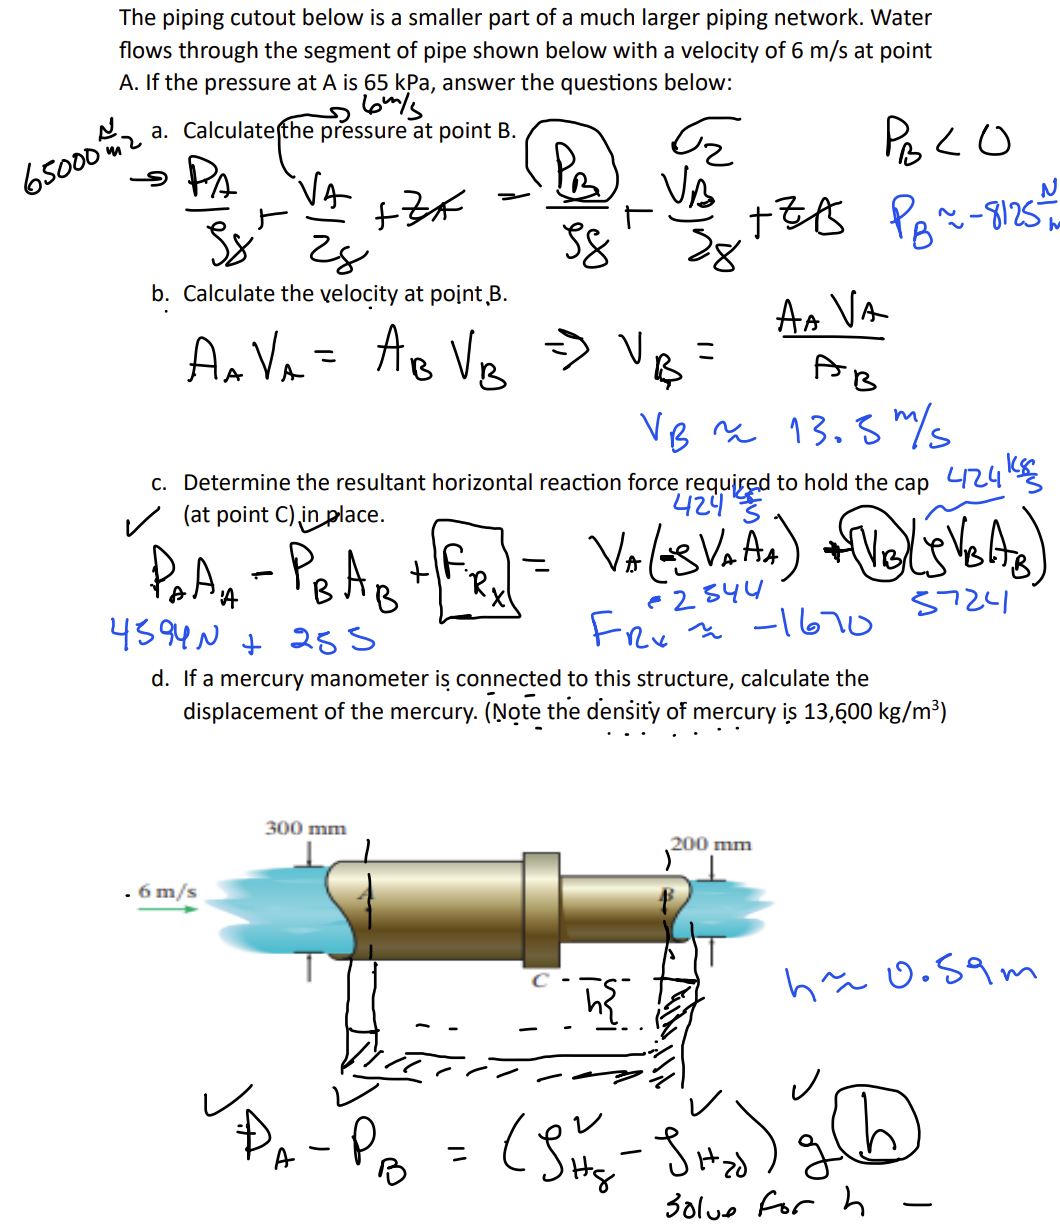 The piping cutout below is a smaller part of a much larger piping network. Water
flows through the segment of pipe shown below with a velocity of 6 m/s at point
A. If the pressure at A is 65 kPa, answer the questions below:
6m/s
a. Calculate the pressure at point B.
65000 N/m2
PA/ρg + VA/2g + ZA = PB/ρg + VB2/2g + ZB
PB < 0
PB ≈ -8125 N
b. Calculate the velocity at point B.
AA VA = AB VB => VB = AA VA / AB
VB ≈ 13.5 m/s
c. Determine the resultant horizontal reaction force required to hold the cap
(at point C) in place.
424 kg/s
424 kg/s
PA AA - PB AB + FRx = VA(-ρ VA AA) + VB(ρ VB AB)
4594N + 255
-2544
5724
FRx ≈ -1670
d. If a mercury manometer is connected to this structure, calculate the
displacement of the mercury. (Note the density of mercury is 13,600 kg/m³)
300 mm
200 mm
6 m/s
A
B
C
h
h ≈ 0.59m
PA - PB = (ρHg - ρH2O) g h
solve for h